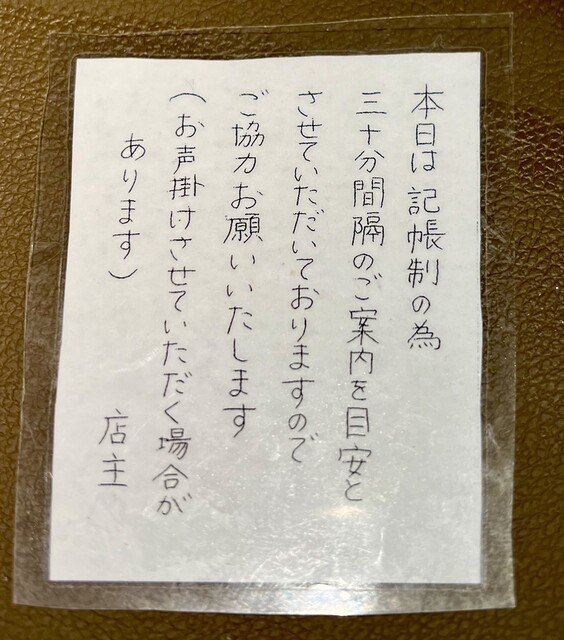 本日は記帳制の為
三十分間隔のご案内を目安と
させていただいておりますので
ご協力お願いいたします
（お声掛けさせていただく場合が
あります）
店主